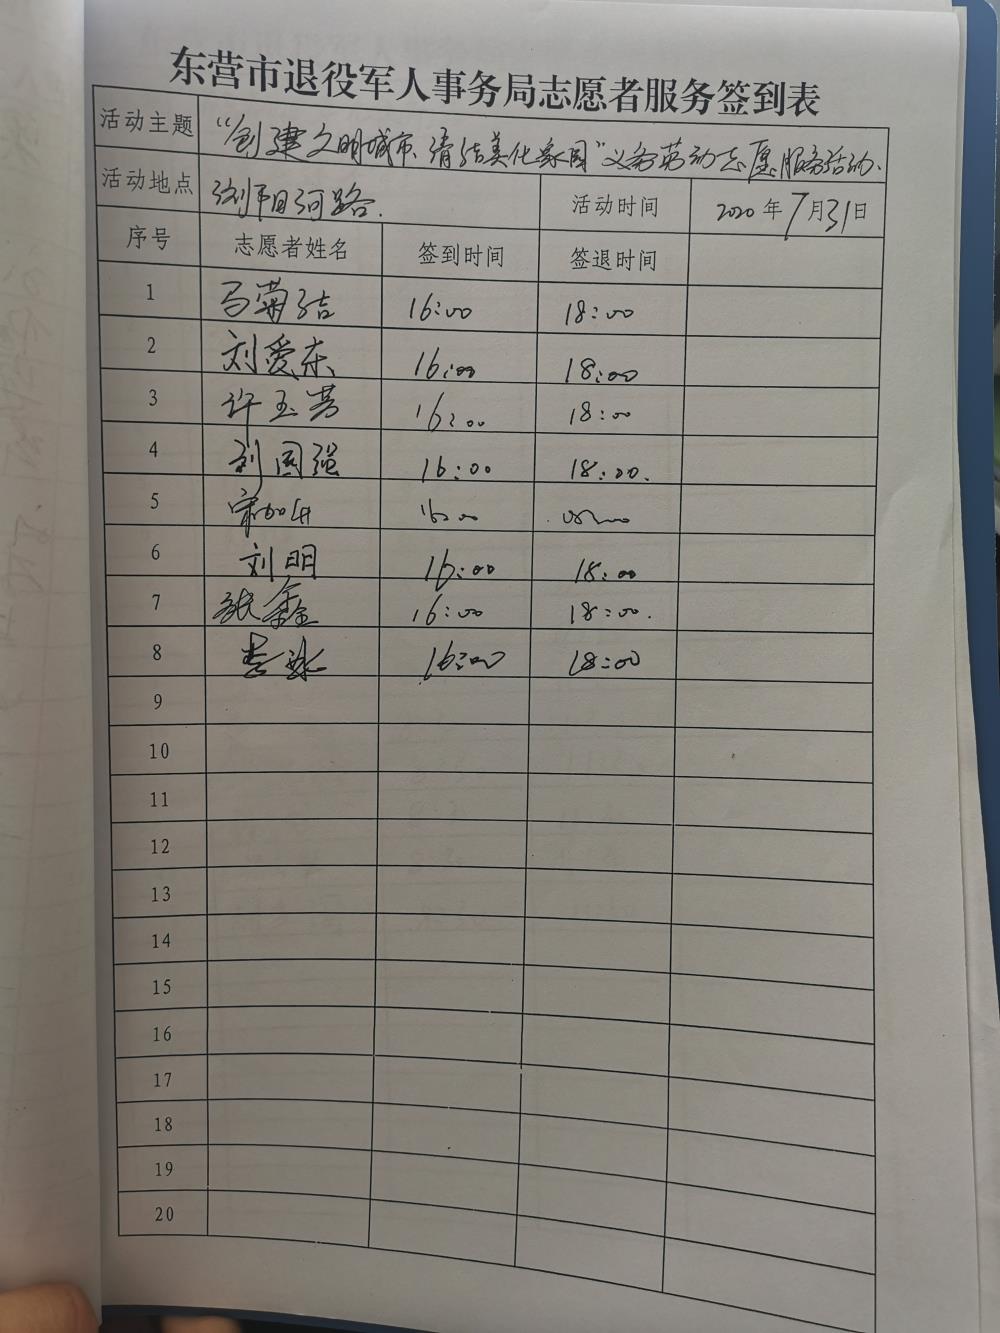 东营市退役军人事务局志愿者服务签到表
活动主题 “创建文明城市、清洁美化家园”义务劳动志愿服务活动.
活动地点 浏阳河路. 活动时间 2020年7月31日
序号 志愿者姓名 签到时间 签退时间
1 马菊洁 16:00 18:00
2 刘爱东 16:00 18:00
3 许玉芳 16:00 18:00
4 刘国强 16:00 18:00.
5 16:00
6 刘明 16:00 18:00
7 张鑫 16:00 18:00.
8 16:00 18:00
9
10
11
12
13
14
15
16
17
18
19
20